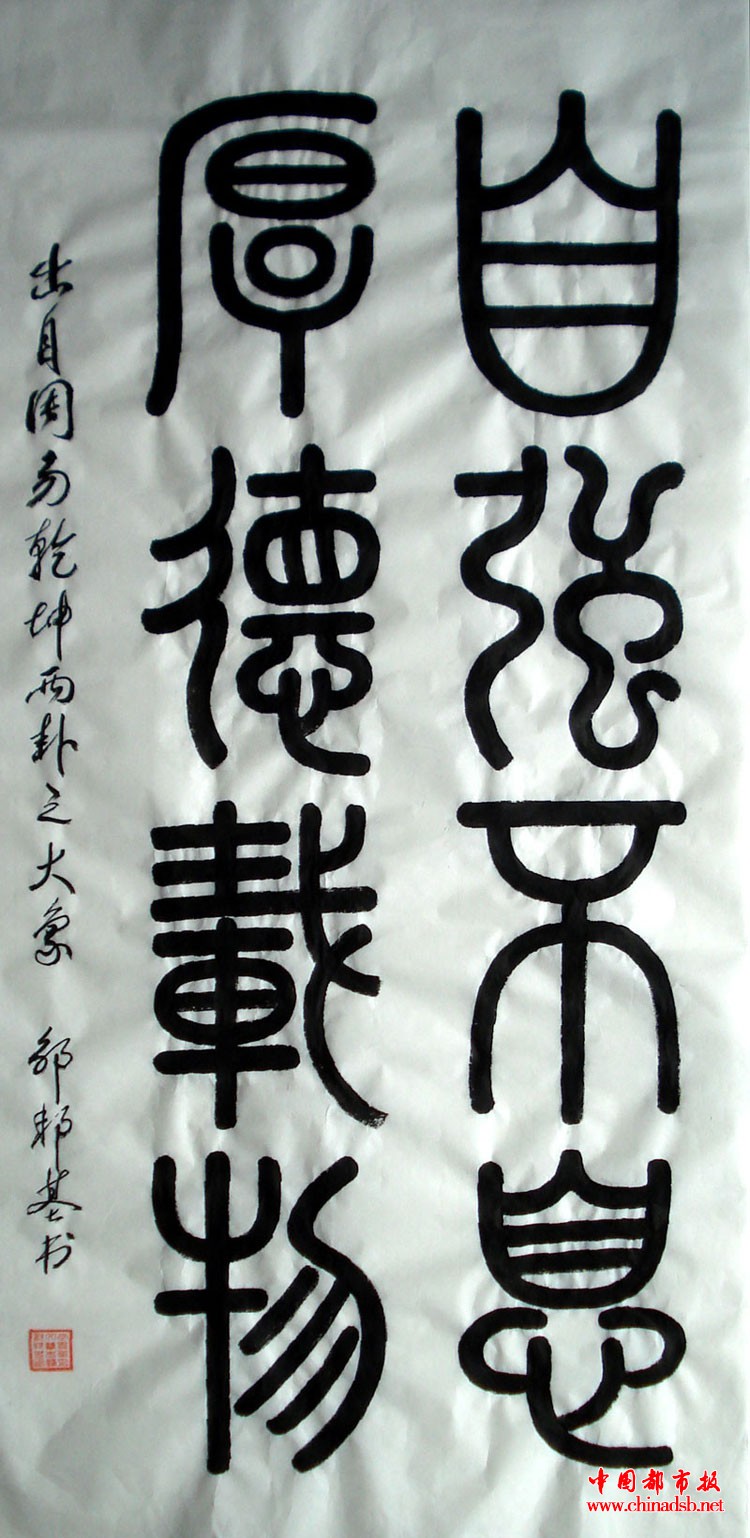 自强不息
厚德載物
出自周易乾坤两卦之大象 邹邦基书
中国都市报
www.chinadsb.net